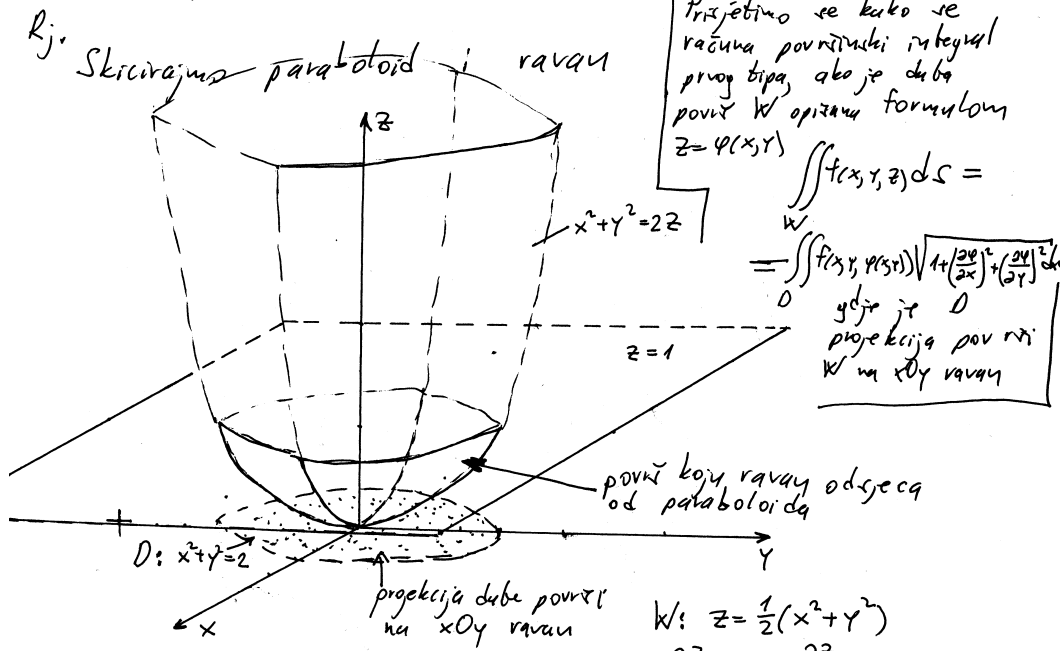 Rj.
Skicirajmo paraboloid i ravan
Prisjetimo se kako se
računa površinski integral
prvog tipa, ako je data
površ W opisana formulom
z = φ(x,y)
∬_W f(x,y,z) dS =
= ∬_D f(x,y,φ(x,y)) √(1+(∂φ/∂x)²+(∂φ/∂y)²)
gdje je D
projekcija površi
W na xOy ravan
z
x²+y²=2z
z=1
površ koju ravan odsjeca
od paraboloida
D: x²+y²=2
y
projekcija date površi
na xOy ravan
x
W: z = ½(x²+y²)